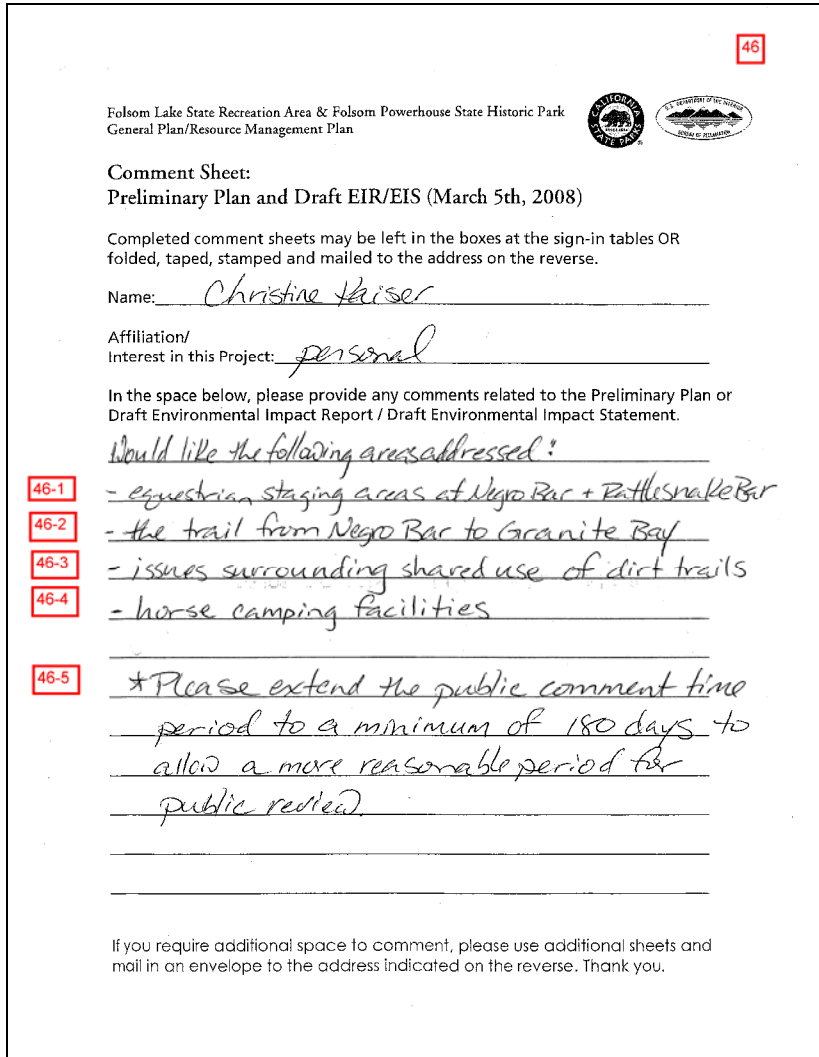 46
Folsom Lake State Recreation Area & Folsom Powerhouse State Historic Park
General Plan/Resource Management Plan
CALIFORNIA
STATE PARKS
U.S. DEPARTMENT OF THE INTERIOR
BUREAU OF RECLAMATION
Comment Sheet:
Preliminary Plan and Draft EIR/EIS (March 5th, 2008)
Completed comment sheets may be left in the boxes at the sign-in tables OR
folded, taped, stamped and mailed to the address on the reverse.
Name: Christine Kaiser
Affiliation/
Interest in this Project: personal
In the space below, please provide any comments related to the Preliminary Plan or
Draft Environmental Impact Report / Draft Environmental Impact Statement.
Would like the following areas addressed:
46-1 - equestrian staging areas at Negro Bar + Rattlesnake Bar
46-2 - the trail from Negro Bar to Granite Bay
46-3 - issues surrounding shared use of dirt trails
46-4 - horse camping facilities
46-5 * Please extend the public comment time
period to a minimum of 180 days to
allow a more reasonable period for
public review.
If you require additional space to comment, please use additional sheets and
mail in an envelope to the address indicated on the reverse. Thank you.